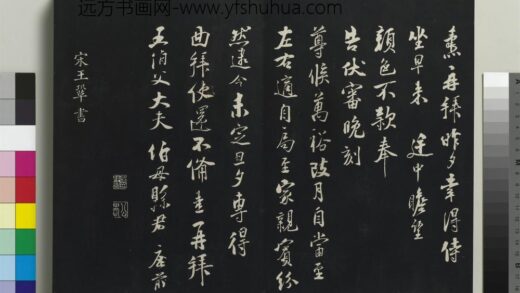 远方书画网-www.yfshuhua.com
再拜昨夕幸得侍
坐早来廷中瞻望
颜色不款奉
告伏審晚刻
尊候萬裕改月自當至
左右適自局至家親賓紛
然遂今未定旦夕專得
面拜使還不備再拜
夫大夫伯母縣君座前
宋王鞏書